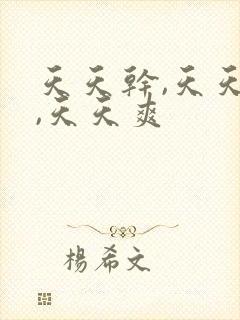 天天幹,天天
,天天爽
楊希文